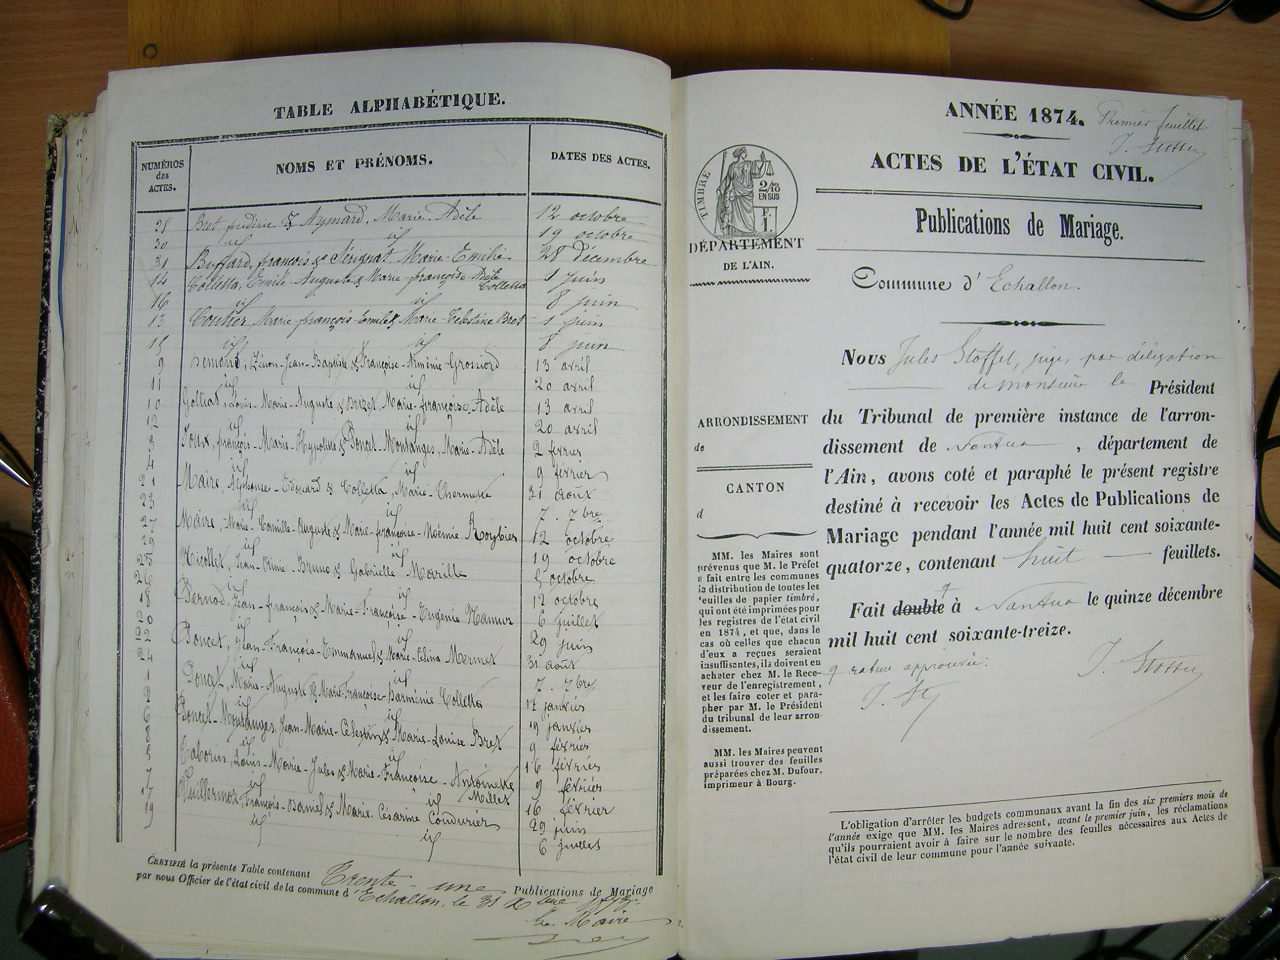 TABLE ALPHABÉTIQUE.
NUMÉROS des ACTES.
NOMS ET PRÉNOMS.
DATES DES ACTES.
Aymard, Marie-Adèle 12 octobre
id id 19 octobre
Buffard, françois & Sérignat Marie-Emilie 28 décembre
14 Colletta, Emile-Auguste & Marie-françoise Adèle Colletta 1 juin
16 id id 8 juin
13 Marie-françois-Emile & Marie-Célestine Bret 1 juin
15 id id 8 juin
9 Jean-Baptiste & Françoise 13 avril
11 id id 20 avril
10 Louis-Marie-Auguste & Marie-françoise, Adèle 13 avril
12 id 20 avril
3 françois-Marie-Hyppolite & Poncet-Montanges, Marie-Adèle 2 février
4 id id 9 février
21 Maire, Alphonse-Edouard & Colletta, Marie 31 août
23 id id 7. 7bre
27 Maire, Marie-Camille-Auguste & Marie-françoise-Noémie 12 octobre
29 id id 19 octobre
25 Nicollet, Jean & Gabrielle 5 octobre
26 id id 12 octobre
18 Jean-françois & Marie-Françoise-Eugénie 6 juillet
20 id id 29 juin
22 Poncet, Jean-François-Emmanuel & Marie Mermet 31 août
24 id id 7. 7bre
1 Poncet, Marie-Auguste & Marie-Françoise Colletta 12 janvier
2 id id 19 janvier
6 Poncet-Montanges, Jean-Marie-Célestin & Marie-Louise Bret 9 février
8 id id 16 février
5 Louis-Marie-Jules & Marie-Françoise-Antoinette Millet 9 février
7 id id 16 février
17 Vuillermoz, François & Marie Césarine Condurier 29 juin
19 id id 6 juillet
CERTIFIÉ la présente Table contenant Trente-une Publications de Mariage
par nous Officier de l'état civil de la commune d'Echallon, le 31 Xbre
Le Maire
ANNÉE 1874. Premier feuillet
J. Stoffel
ACTES DE L'ÉTAT CIVIL.
Publications de Mariage.
TIMBRE
2/10 EN SUS
F. 1
DÉPARTEMENT
DE L'AIN.
Commune d'Echallon.
Nous Jules Stoffel, juge, par délégation
de monsieur le Président
du Tribunal de première instance de l'arron-
dissement de Nantua, département de
l'Ain, avons coté et paraphé le présent registre
destiné à recevoir les Actes de Publications de
Mariage pendant l'année mil huit cent soixante-
quatorze, contenant huit feuillets.
Fait double à Nantua le quinze décembre
mil huit cent soixante-treize.
rature approuvée.
J. St
J. Stoffel
ARRONDISSEMENT
de
CANTON
d
MM. les Maires sont
prévenus que M. le Préfet
a fait entre les communes
la distribution de toutes les
feuilles de papier timbré,
qui ont été imprimées pour
les registres de l'état civil
en 1874, et que, dans le
cas où celles que chacun
d'eux a reçues seraient
insuffisantes, ils doivent en
acheter chez M. le Rece-
veur de l'enregistrement,
et les faire coter et para-
pher par M. le Président
du tribunal de leur arron-
dissement.
MM. les Maires peuvent
aussi trouver des feuilles
préparées chez M. Dufour,
imprimeur à Bourg.
L'obligation d'arrêter les budgets communaux avant la fin des six premiers mois de
l'année exige que MM. les Maires adressent, avant le premier juin, les réclamations
qu'ils pourraient avoir à faire sur le nombre des feuilles nécessaires aux Actes de
l'état civil de leur commune pour l'année suivante.